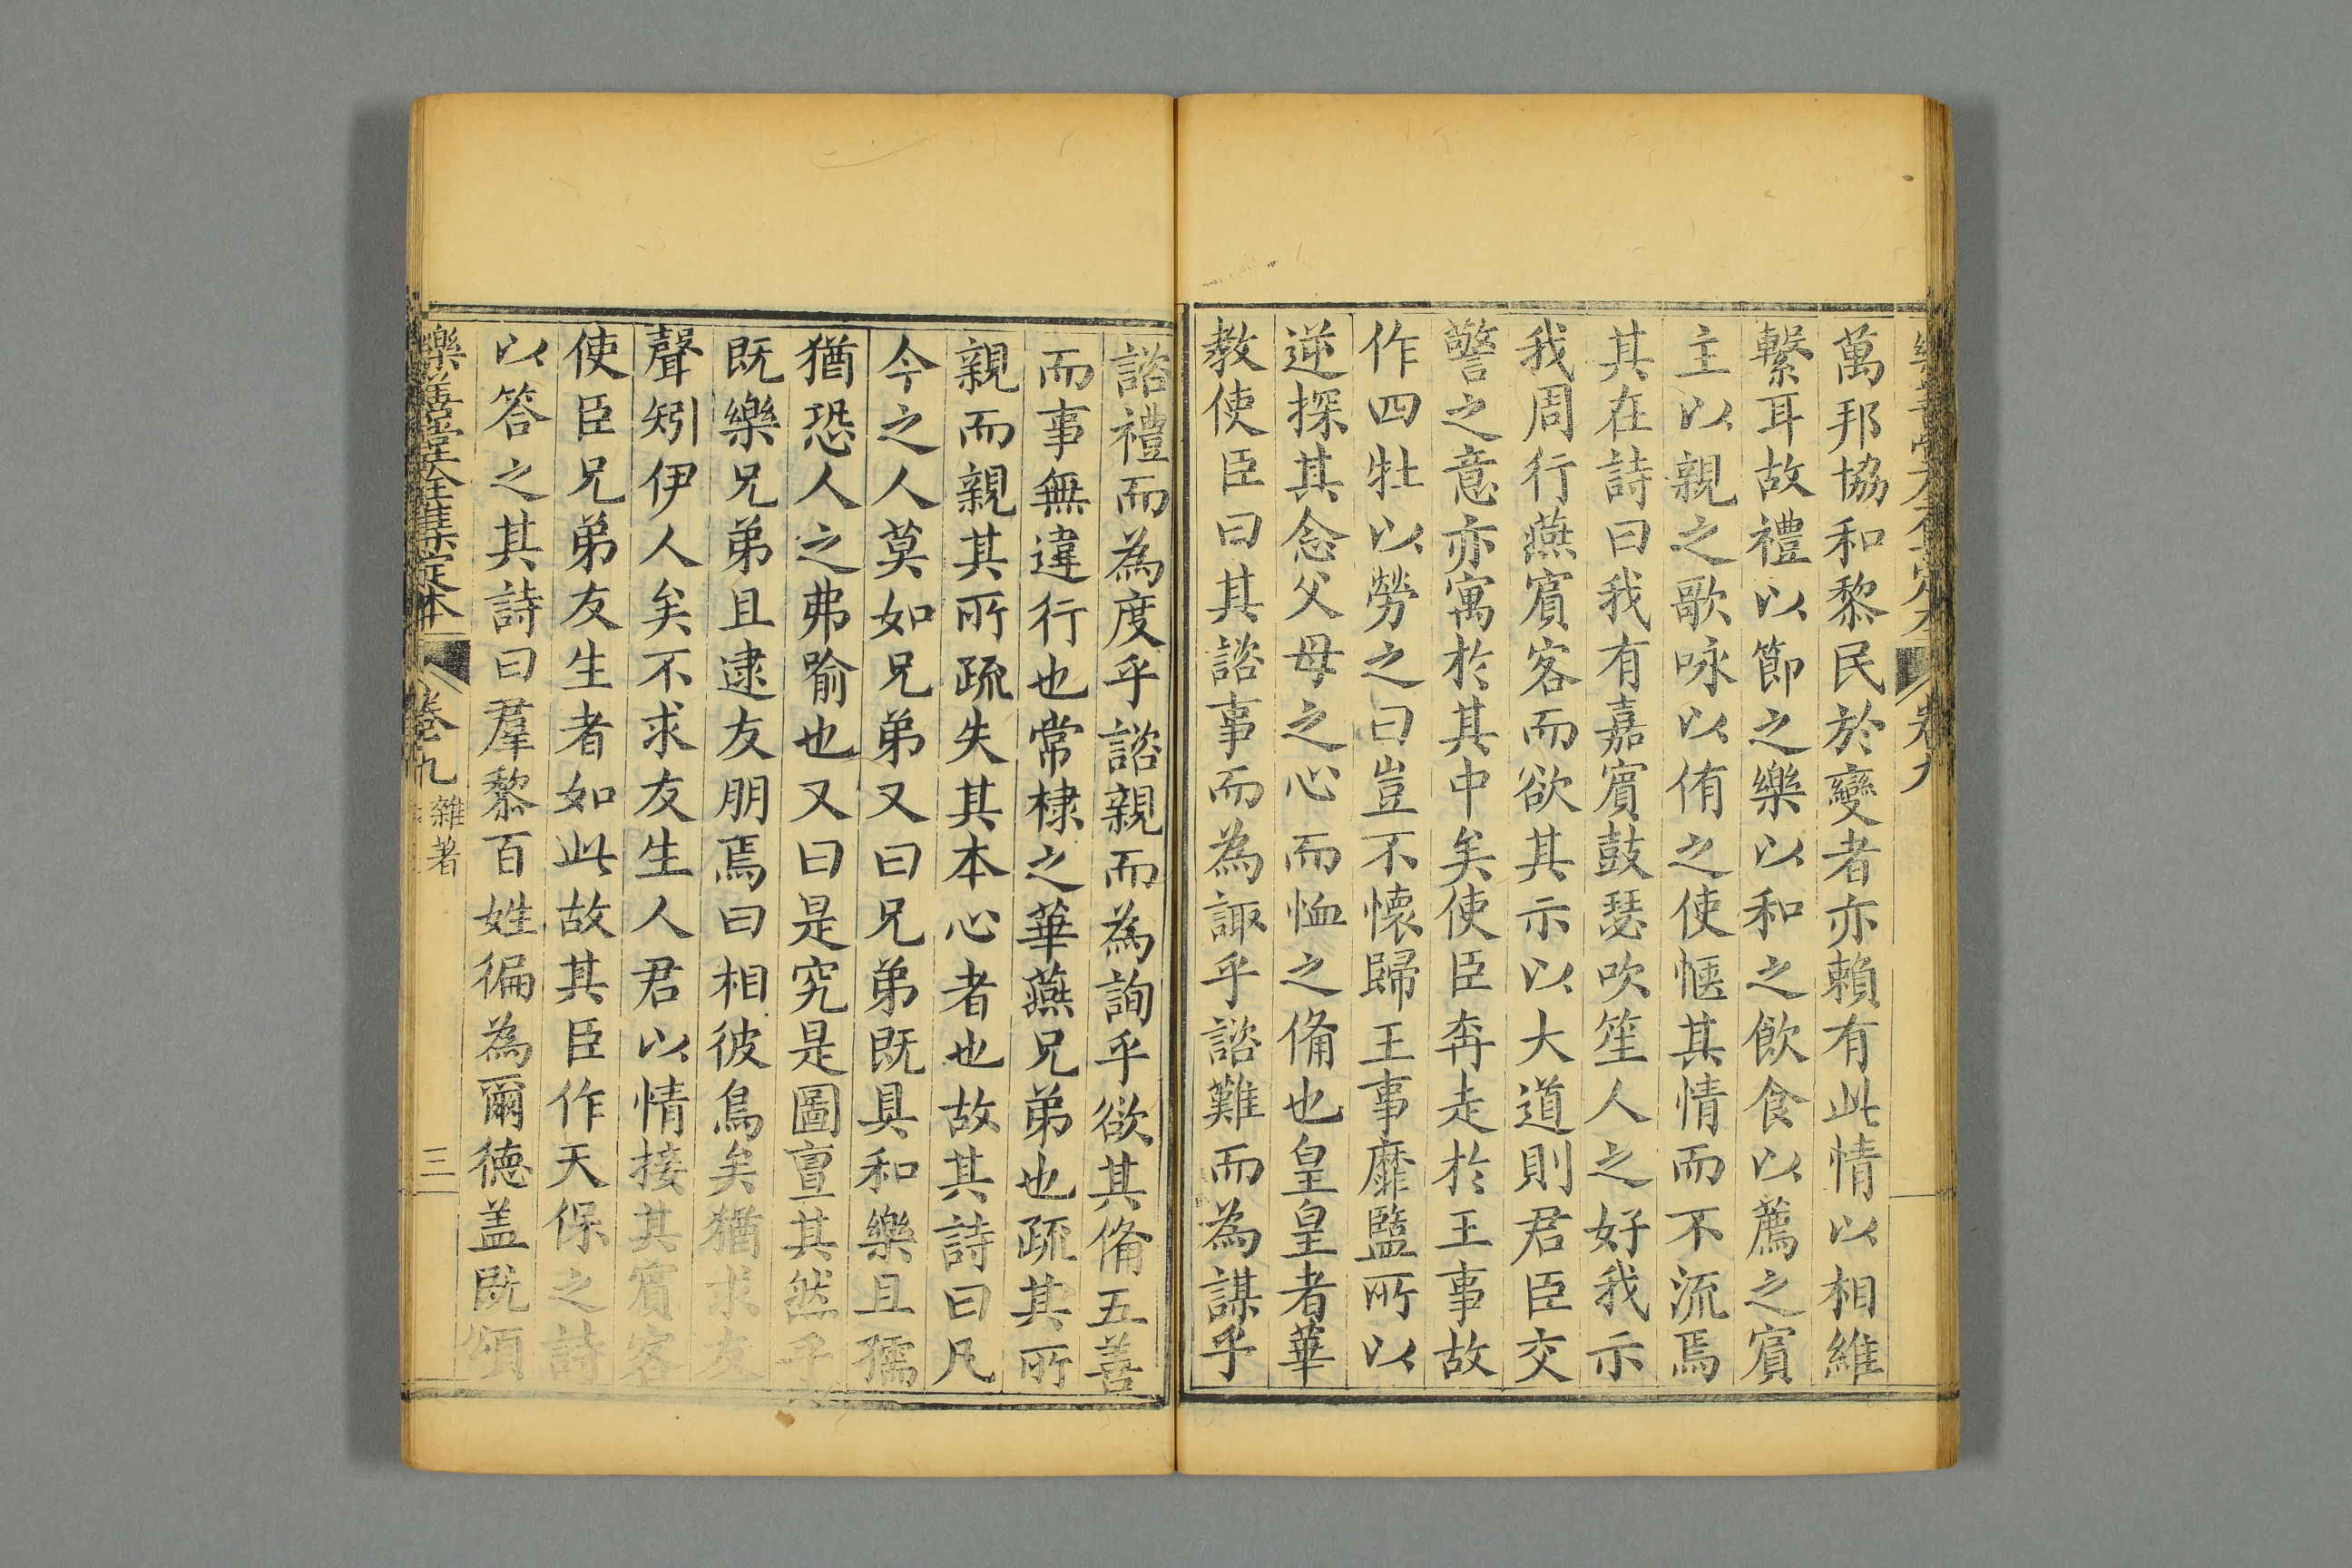 萬邦協和黎民於變者亦賴有此情以相維
繫耳故禮以節之樂以和之飲食以薦之賓
主以親之歌咏以侑之使愜其情而不流焉
其在詩曰我有嘉賓鼓瑟吹笙人之好我示
我周行燕賓客而欲其示以大道則君臣交
警之意亦寓於其中矣使臣奔走於王事故
作四牡以勞之曰豈不懷歸王事靡盬所以
逆探其念父母之心而恤之俻也皇皇者華
教使臣曰其諮事而為諏乎諮難而為謀乎
諮禮而為度乎諮親而為詢乎欲其俻五善
而事無違行也常棣之華燕兄弟也疏其所
親而親其所疏失其本心者也故其詩曰凡
今之人莫如兄弟又曰兄弟既具和樂且孺
猶恐人之弗喻也又曰是究是圖亶其然乎
既樂兄弟且逮友朋焉曰相彼鳥矣猶求友
聲矧伊人矣不求友生人君以情接其賓客
使臣兄弟友生者如此故其臣作天保之詩
以答之其詩曰羣黎百姓徧為爾德盖既頌
樂善堂全集定本 卷九 雜著 三